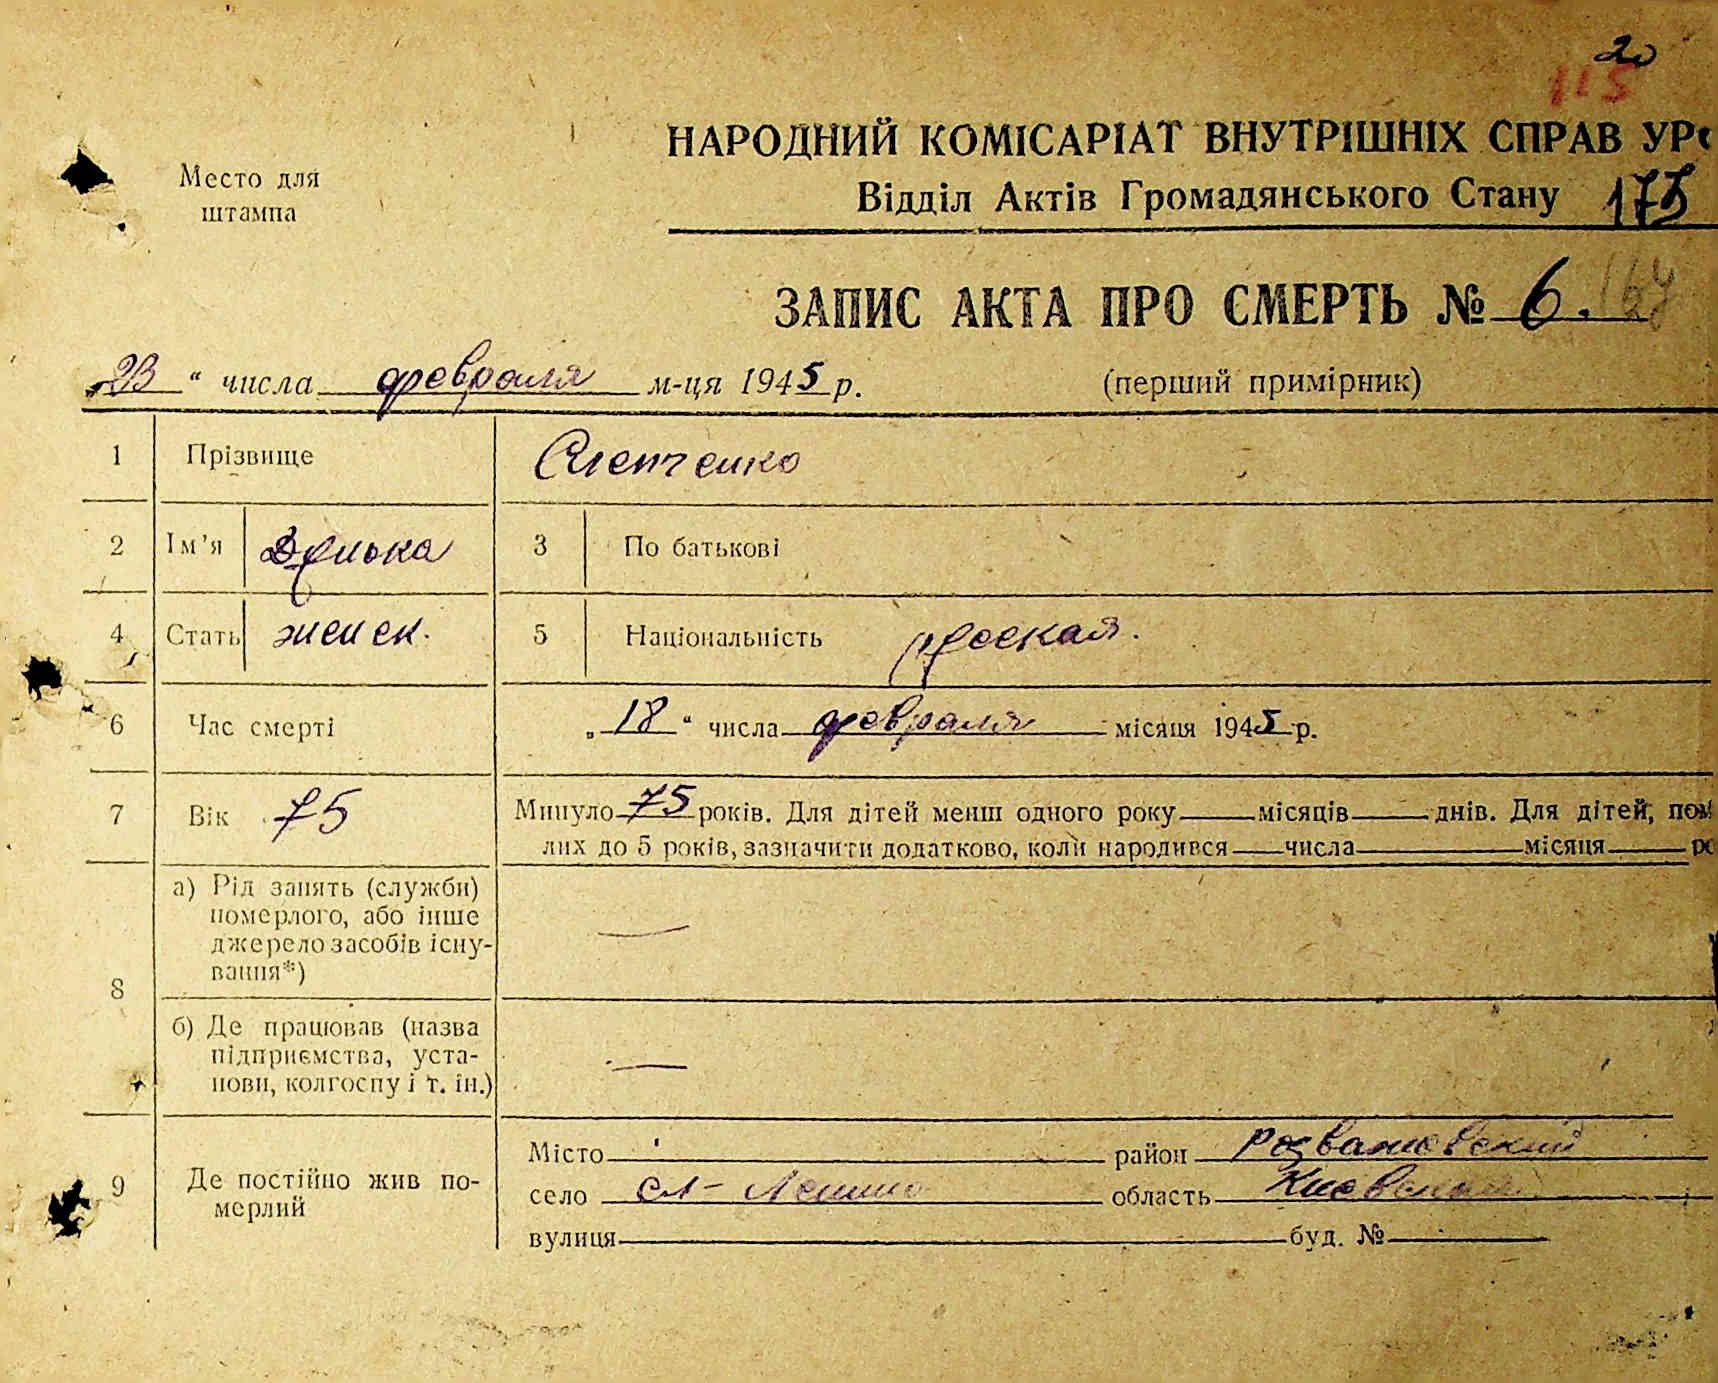 20
115
Место для
штампа
НАРОДНИЙ КОМІСАРІАТ ВНУТРІШНІХ СПРАВ УРС
Відділ Актів Громадянського Стану 175
ЗАПИС АКТА ПРО СМЕРТЬ № 6. 164
„23“ числа февраля м-ця 1945 р. (перший примірник)
1 Прізвище
2 Ім’я 3 По батькові
4 Стать женск. 5 Національність русская.
6 Час смерті „18“ числа февраля місяця 1945 р.
7 Вік 75 Минуло 75 років. Для дітей менш одного року місяців днів. Для дітей, пом
лих до 5 років, зазначити додатково, коли народився числа місяця ро
8 а) Рід занять (служби)
померлого, або інше
джерело засобів існу-
вання*) —
б) Де працював (назва
підприємства, уста-
нови, колгоспу і т. ін.) —
9 Де постійно жив по-
мерлий
Місто район Розважевский
село область Киевская
вулиця буд. №